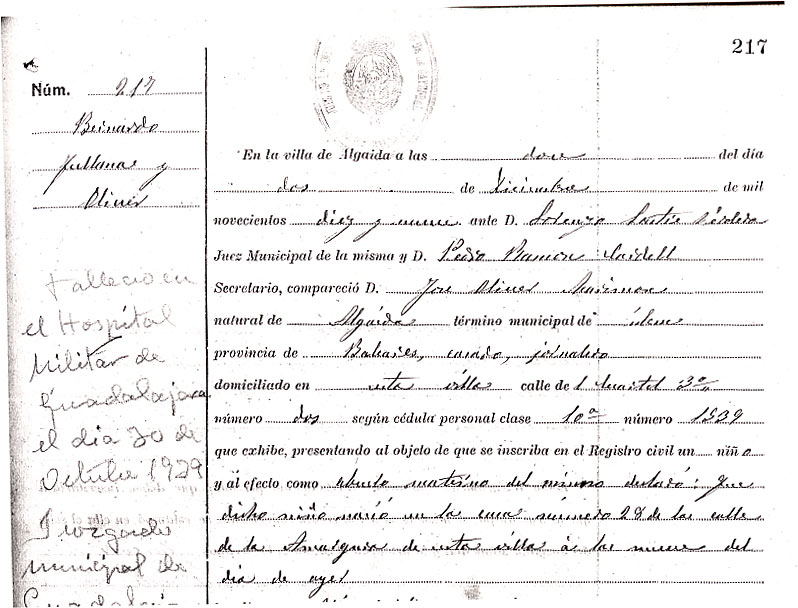 217
Núm. 217
Bernardo
Jullana y
Oliver
Falleció en
el Hospital
Militar de
Guadalajara
el dia 30 de
Octubre 1939
Juzgado
municipal de
En la villa de Algaida a las doce del día
dos de Diciembre de mil
novecientos diez y nueve ante D. Lorenzo
Juez Municipal de la misma y D. Pedro Ramon
Secretario, compareció D. José Oliver
natural de Algaida término municipal de idem
provincia de Baleares, casado, jornalero
domiciliado en esta villa calle de 3º
número dos según cédula personal clase 10ª número 1539
que exhibe, presentando al objeto de que se inscriba en el Registro civil un niño
y al efecto como abuelo materno del mismo declaró: Que
dicho niño nació en la casa número 28 de la calle
de la Amargura de esta villa á las nueve del
dia de ayer